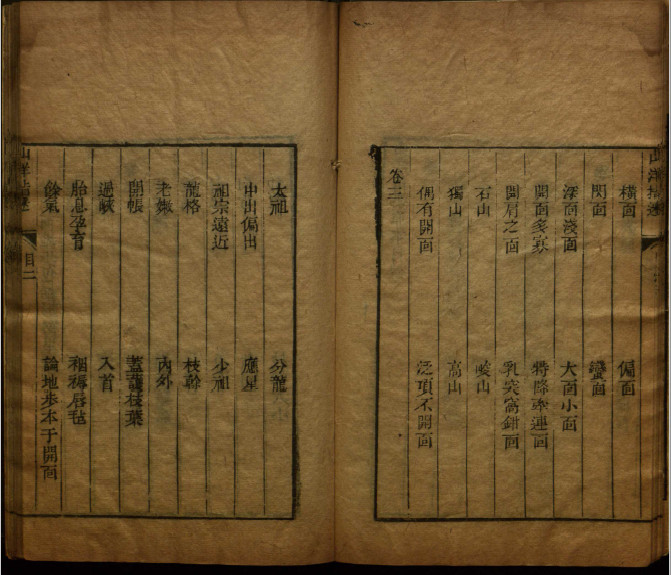 橫面 偏面
閃面 蠻面
深面淺面 大面小面
開面多寡 特降牽連面
開肩之面 乳突窩鉗面
石山 峻山
獨山 高山
偶有開面 泛頂不開面
卷三
太祖 分龍
中出偏出 應星
祖宗遠近 少祖
龍格 枝幹
老嫩 內外
開帳 蓋護枝葉
過峽 入首
胎息孕育 裀褥唇毡
餘氣 論地步本于開面
目二